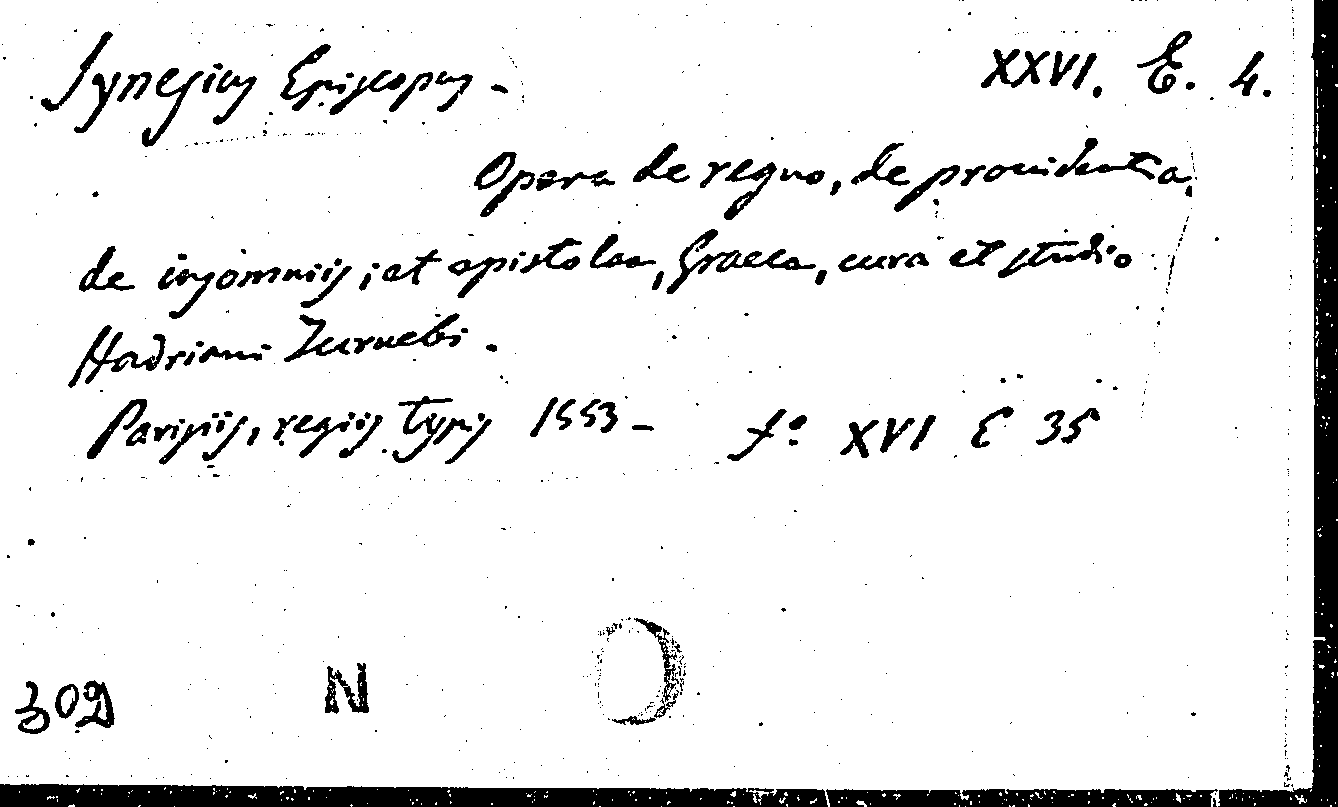 Synesius Episcopus - XXVI. E. 4.
Opera de regno, de prouidentia,
de insomniis; et epistolae, Graeca, cura et studio
Hadriani Turnebi.
Parisiis, regiis typis 1553 - fº XVI E 35
302 N